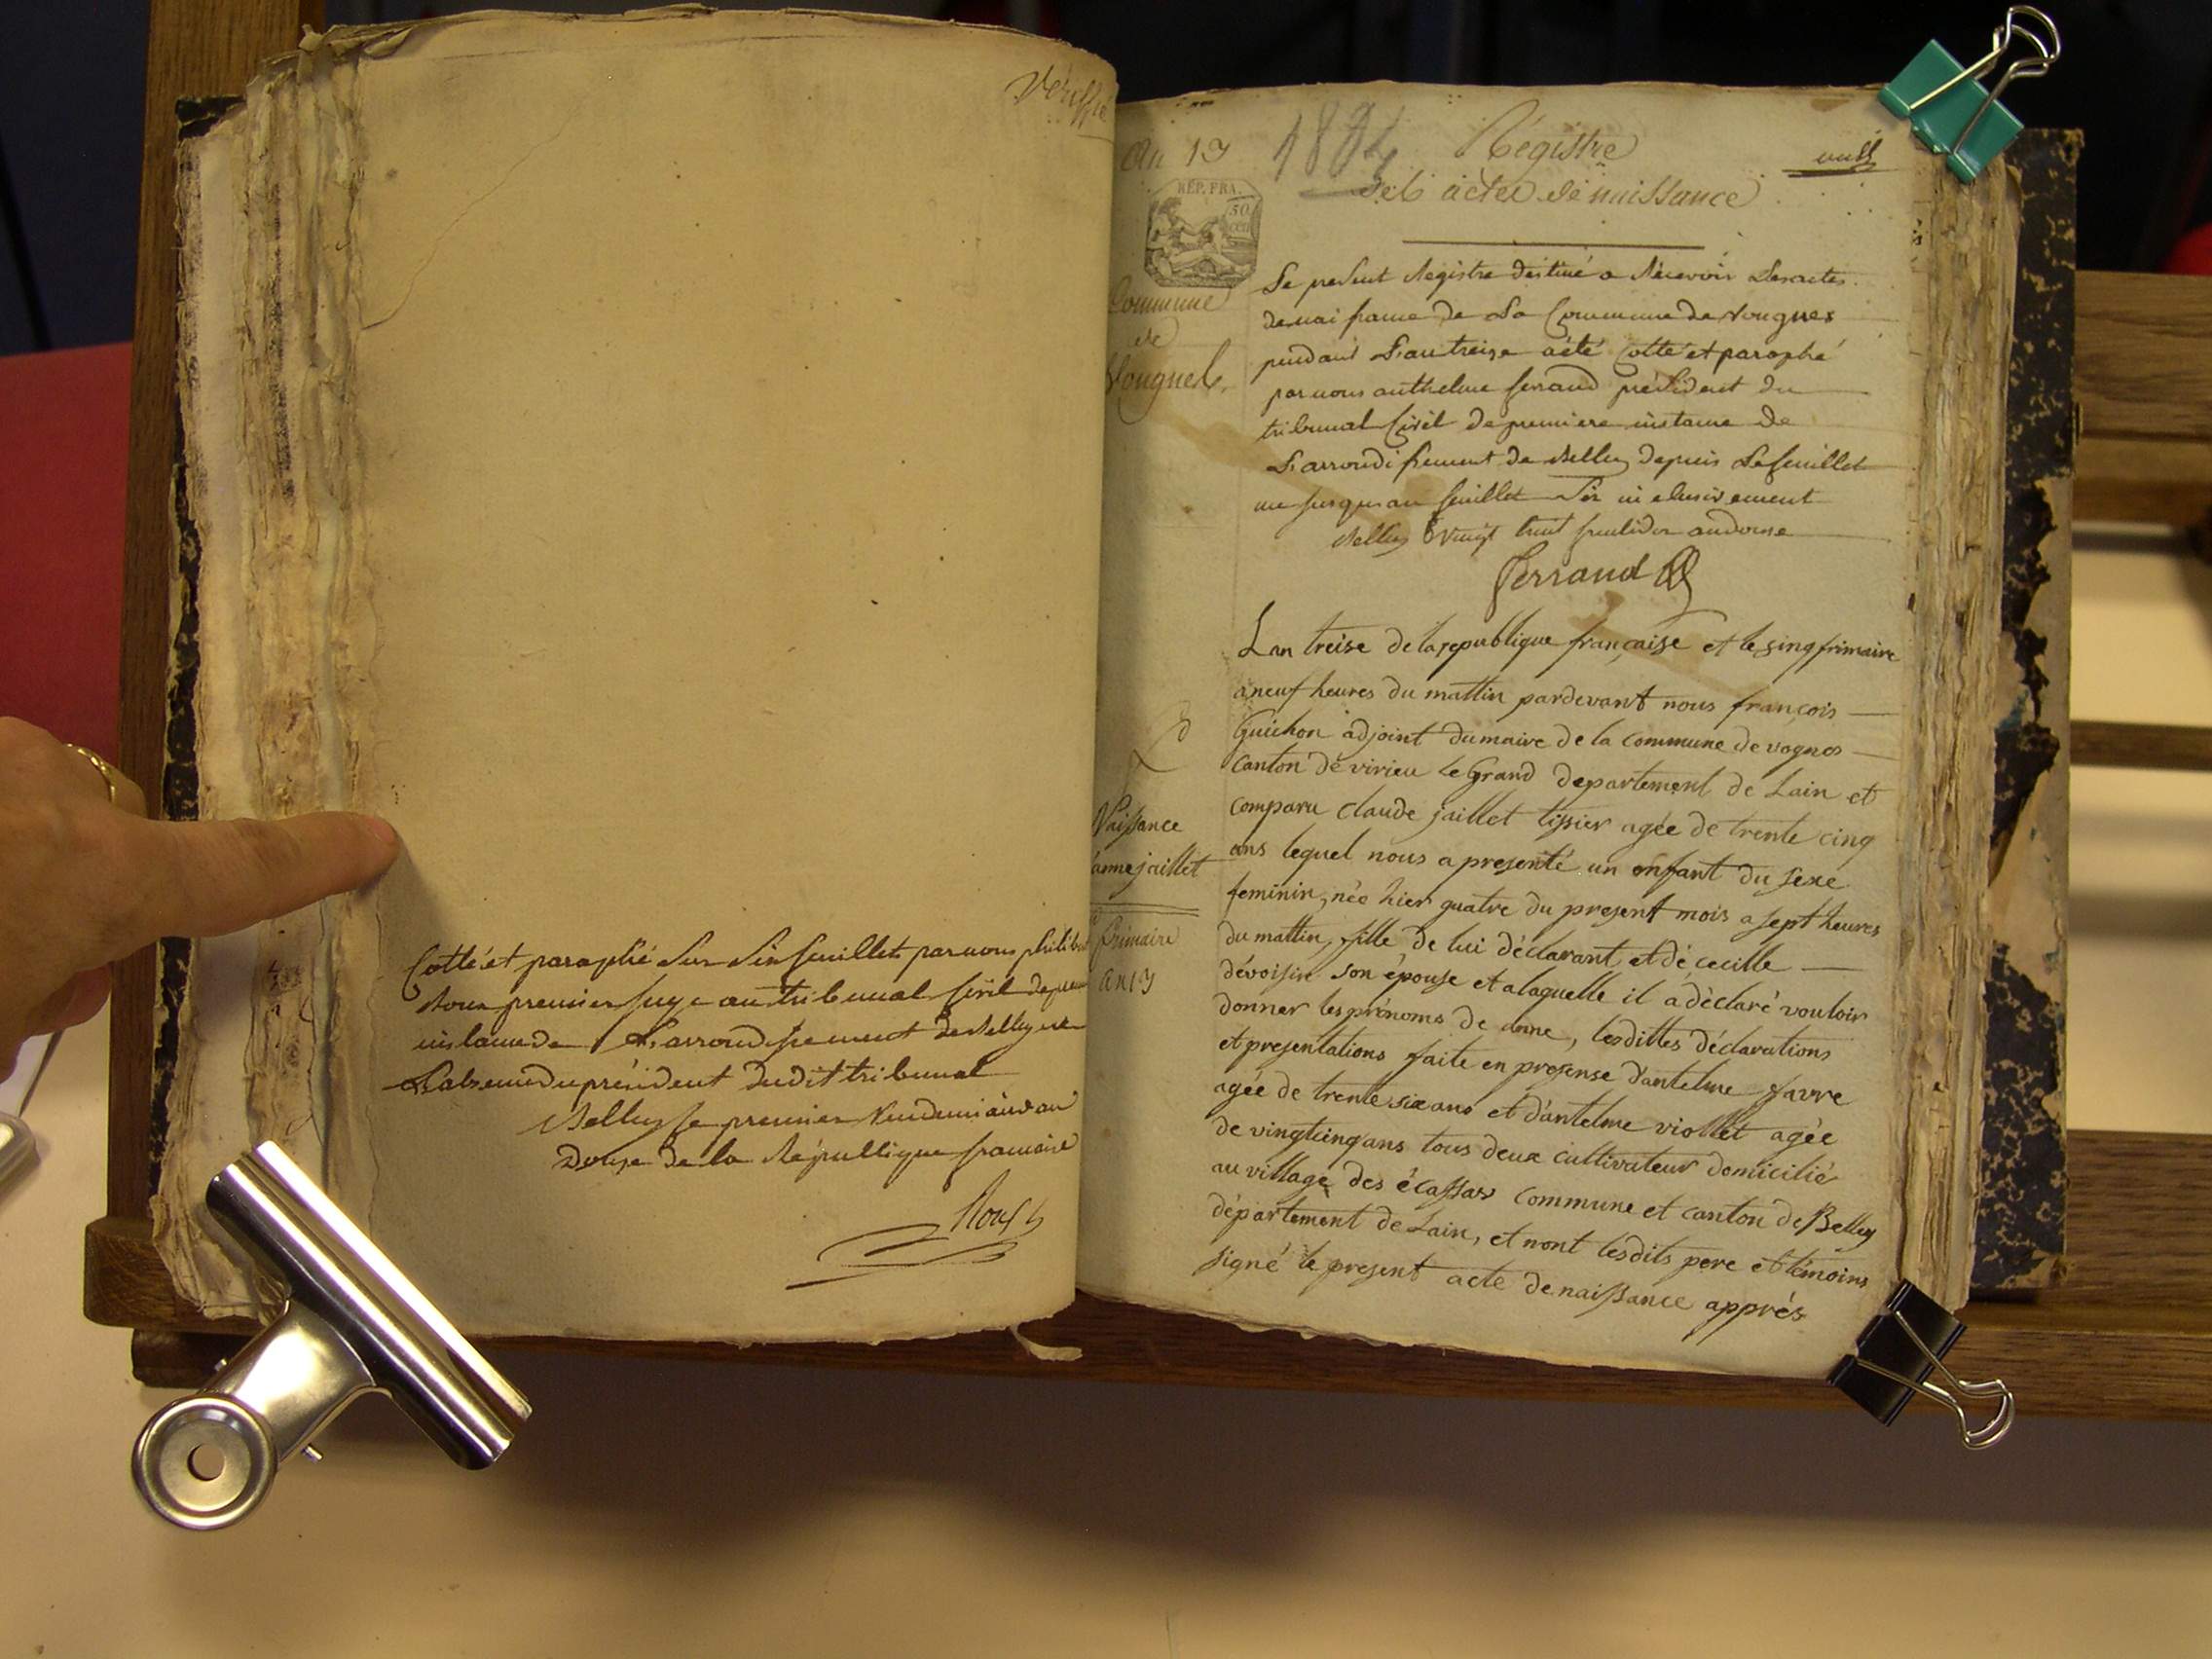 Vériffié
Cotté et paraphé sur six feuillets par nous philibert
Roux premier juge au tribunal civil de premiere
instance de L'arrondissement de Belley en
L'absence du président dudit tribunal
Belley le premier Vendemiaire an
Douze de la République francaise
Roux
an 13 1804 Régistre
des actes de naissance
RÉP. FRA.
50
cen
Commune
de
Vongnes.
Le present Registre destiné a Récevoir Les actes
de naissance de La Commune de Vongnes
pendant L'an treize a été Cotté et paraphé
par nous anthelme ferrand président du
tribunal Civil de premiere instance de
L'arrondissement de Belley depuis Le feuillet
un jusques au feuillet Six inclusivement
Belley vingt huit fructidor an douze
Ferrand
Lan treise de la republique française et le sinq frimaire
a neuf heures du mattin pardevant nous françois
Guichon adjoint du maire de la commune de vognes
Canton de virieu le Grand departement de Lain et
comparu claude jaillet tissier agée de trente cinq
ans lequel nous a presenté un enfant du sexe
feminin, née hier quatre du present mois a sept heures
du mattin, fille de lui déclarant et de cecille
dévoisin son épouse et a laquelle il a déclaré vouloir
donner les prénoms de anne, lesdittes déclarations
et presentations faite en presense d'antelme favre
agée de trente six ans et d'antelme viollet agée
de vingtcinq ans tous deux cultivateur domicilié
au village des écassas commune et canton de Belley
département de Lain, et nont lesdits pere et témoins
signé le present acte de naissance apprés
Naissance
anne jaillet
frimaire
an 13